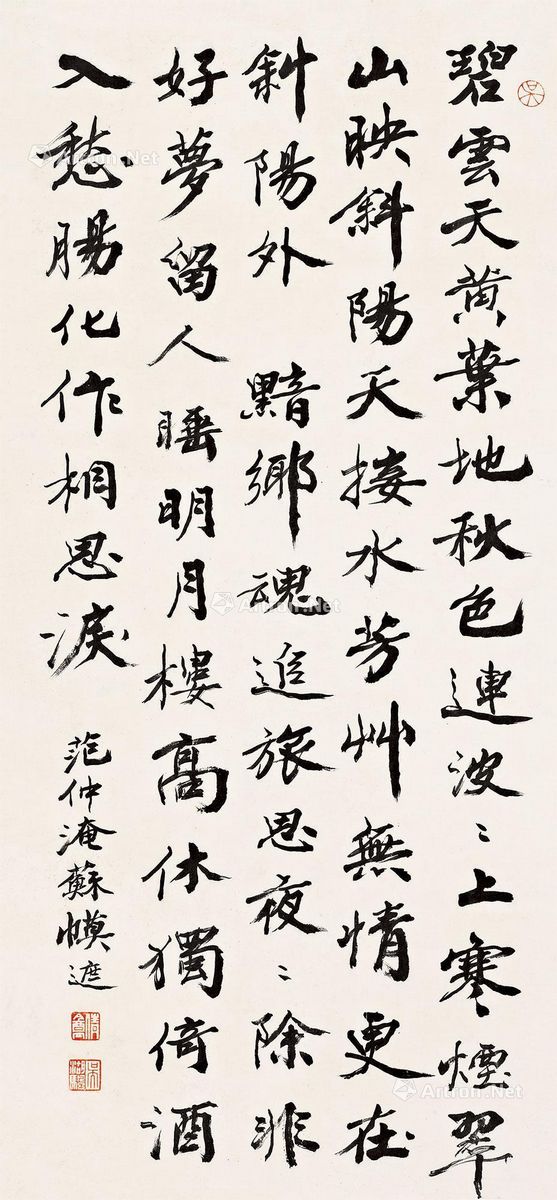 碧雲天黄葉地秋色連波〻上寒煙翠
山映斜陽天接水芳艸無情更在
斜陽外 黯鄉魂追旅思夜〻除非
好夢留人睡明月樓高休獨倚酒
入愁腸化作相思淚
范仲淹蘇幙遮
Artron.Net
Artron.Net
Artron.Net